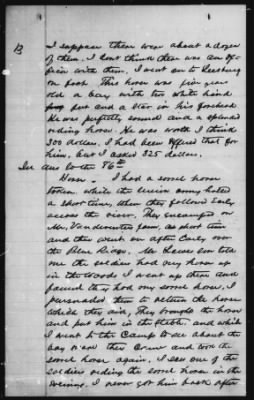 13
I suppose there were about a dozen
of them. I dont think there was an offi-
cer with them. I went on to Leesburg
on foot. This horse was five years
old a bay with two white hind
feet and a Star in his forehead
He was perfectly sound and a splendid
riding horse. He was worth I think
300 dollars. I had been offered that for
him, but I asked 325 dollars.
In ans to the 76th
Horse. I had a sorrel horse
taken while the Union army halted
a short time, when they followed Early
across the river. They encamped on
Mr. Vandeventer farm, a short time
and they went on after Early over
the Blue Ridge. Mr told
me the soldiers had my horse up
in the woods I went up there and
found they had my sorrel horse, I
persuaded them to return the horse
which they did, They brought the horse
and put him in the stable, and while
I went to the Camp to see about the
bay mare they came and took the
sorrel horse again. I saw one of the
soldiers riding the sorrel horse in the
evening. I never got him back after